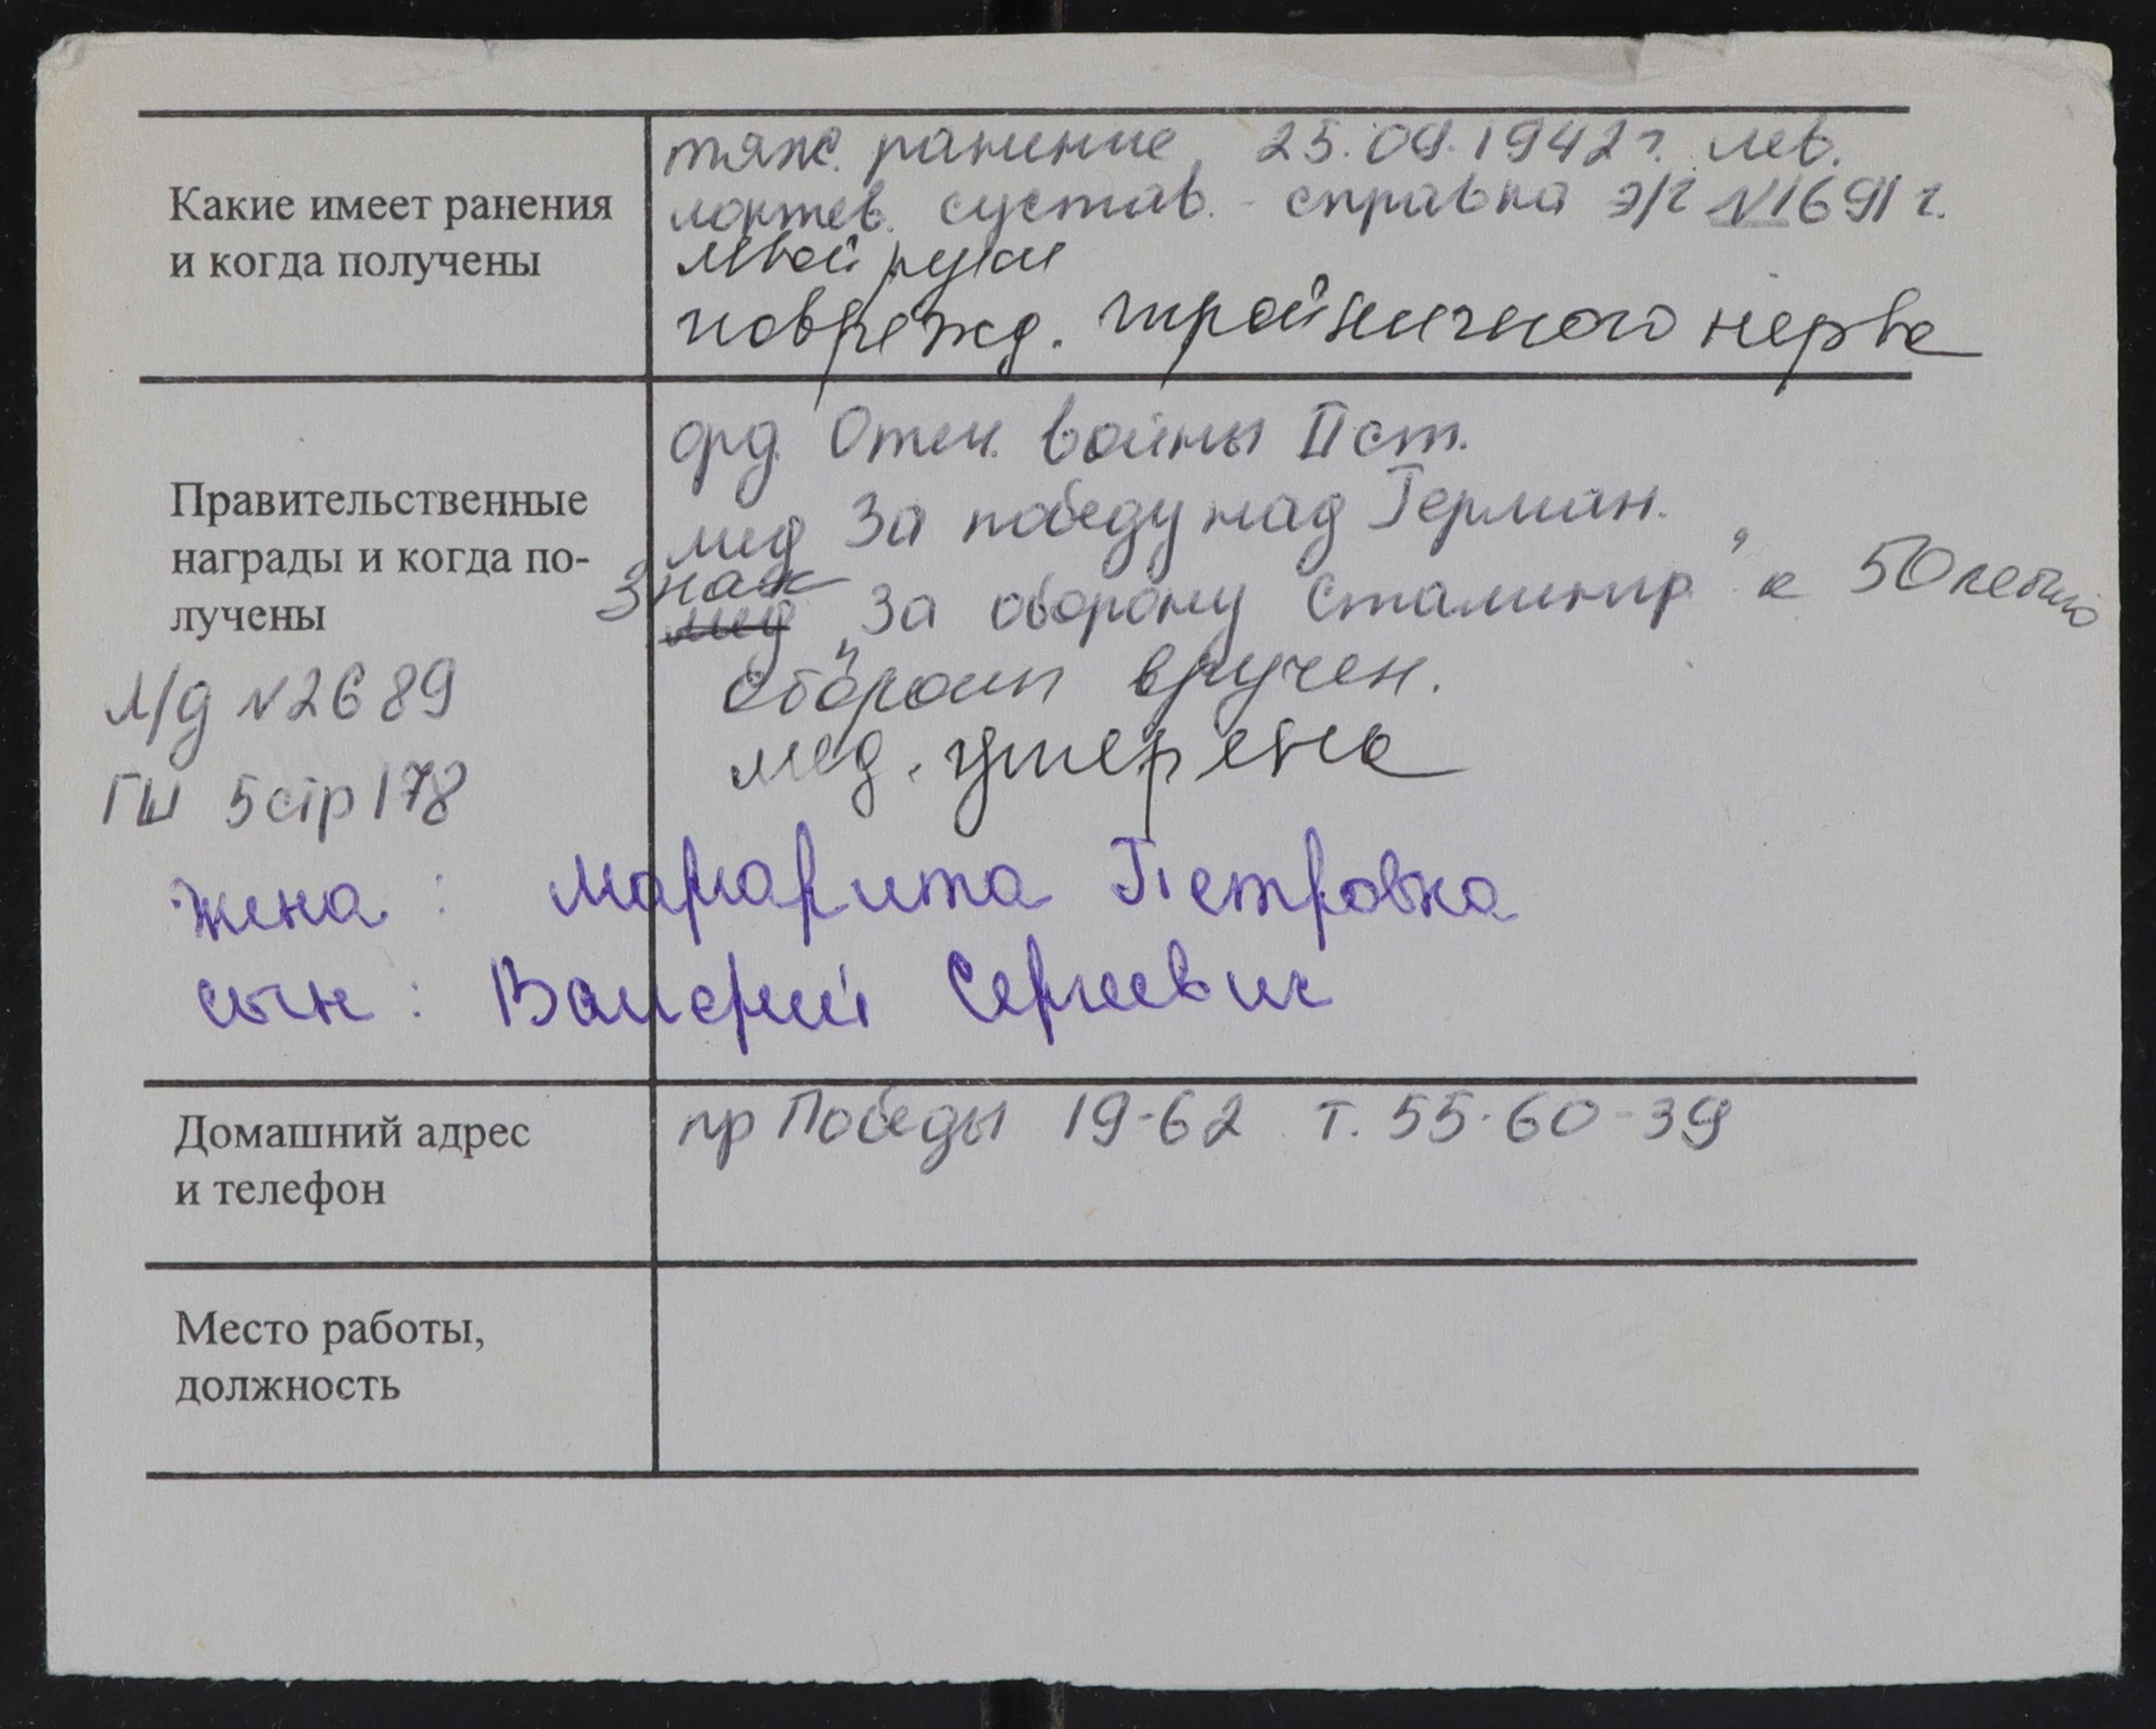 Какие имеет ранения
и когда получены
тяж. ранение 25.09.1942 г. лев.
локтев. сустав. - справка э/г N1691 г.
левой руки
поврежд. тройничного нерва
Правительственные
награды и когда по-
лучены
орд. Отеч. войны II ст.
мед За победу над Герман.
знак
мед "За оборону Сталингр" к 50летию
обороны вручен.
мед. утерена
М/д N2689
ГШ 5 стр 178
жена: Маргарита Петровна
сын: Валерий Сергеевич
Домашний адрес
и телефон
пр Победы 19-62 т. 55-60-39
Место работы,
должность